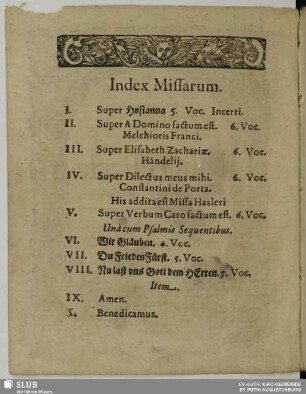 Index Missarum.
I. Super Hosianna 5. Voc. Incerti.
II. Super A Domino factum est. 6. Voc.
Melchioris Franci.
III. Super Elisabeth Zachariæ. 6. Voc.
Händelij.
IV. Super Dilectus meus mihi. 6. Voc.
Constantini de Porta.
His addita est Missa Hasleri
V. Super Verbum Caro factum est. 6. Voc.
Unà cum Psalmis Sequentibus.
VI. Wir Gläuben. 4. Voc.
VII. Du Frieden Fürst. 5. Voc.
VIII. Nu last vns Gott dem HErren. 5. Voc.
Item.
IX. Amen.
X. Benedicamus.
SLUB
Wir führen Wissen.
EV.-LUTH. KIRCHGEMEINDE
ST. PETRI AUGUSTUSBURG